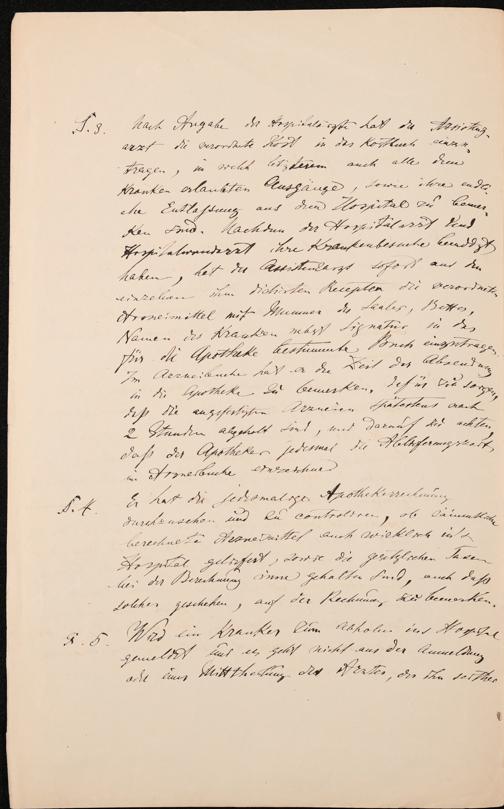 §. 3. Nach Angabe der Hospitalärzte hat der Assistenz-
arzt die verordnete Kost in das Kostbuch einzu-
tragen, in welch letzterem auch alle dem
Kranken erlaubten Ausgänge, sowie ihre endli-
che Entlassung aus dem Hospital zu bemer-
ken sind. Nachdem der Hospitalarzt und
Hospitalwundarzt ihre Krankenbesuche beendigt
haben, hat der Assistenzarzt sofort aus den
einzelnen ihm dictirten Recepten die verordneten
Arzneimittel mit Nummer des Saales, Bettes,
Namen des Kranken nebst Signatur in das
für die Apotheke bestimmte Buch einzutragen.
Im Arzneibuche hat er die Zeit der Absendung
in die Apotheke zu bemerken, dafür zu sorgen,
daß die angefertigten Arzneien spätestens nach
2 Stunden abgeholt sind, und darauf zu achten
daß der Apotheker jedesmal die Ablieferungszeit
im Arzneibuche einzeichne
§. 4. Er hat die jedesmalige Apothekerrechnung
durchzusehen und zu controlieren, ob sämmtliche
berechnete Arzneimittel auch wirklich ins
Hospital geliefert, sowie die gesetzlichen Taxen
bei der Berechnung inne gehalten sind, auch daß
solches geschehen, auf der Rechnung zu bemerken.
§. 5. Wird ein Kranker zum Abholen ins Hospital
gemeldet und es geht nicht aus der Anmeldung
oder einer Mittheilung des Arztes, der ihn seither